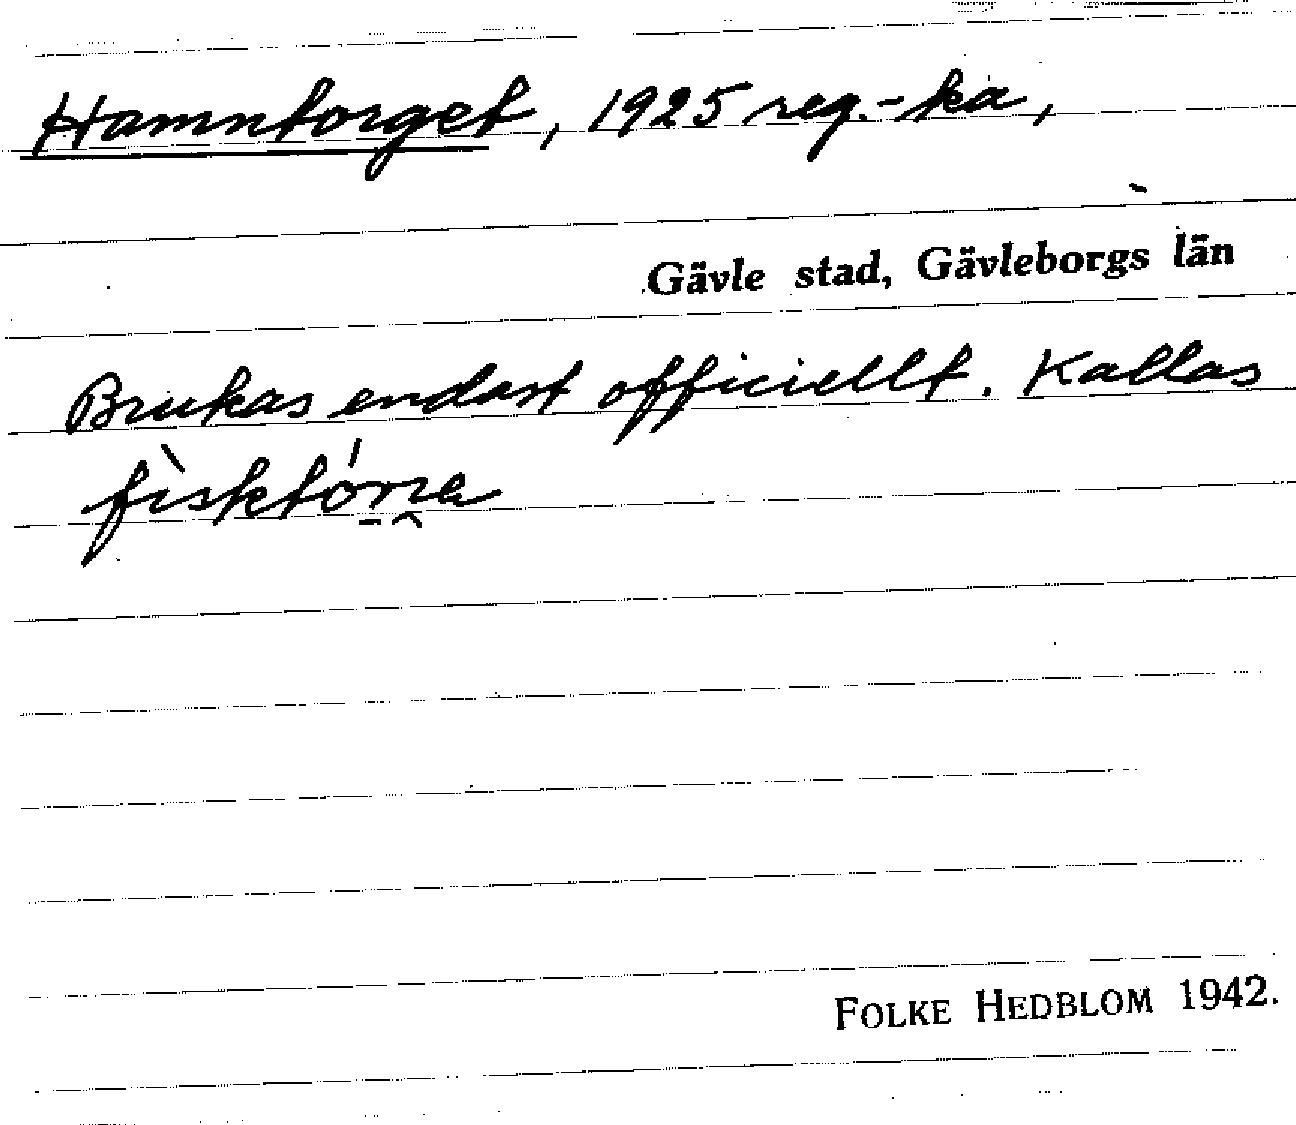 Hamntorget, 1925 reg.-ka,
Gävle stad, Gävleborgs län
Brukas endast officiellt. Kallas
fìsktórra
FOLKE HEDBLOM 1942.